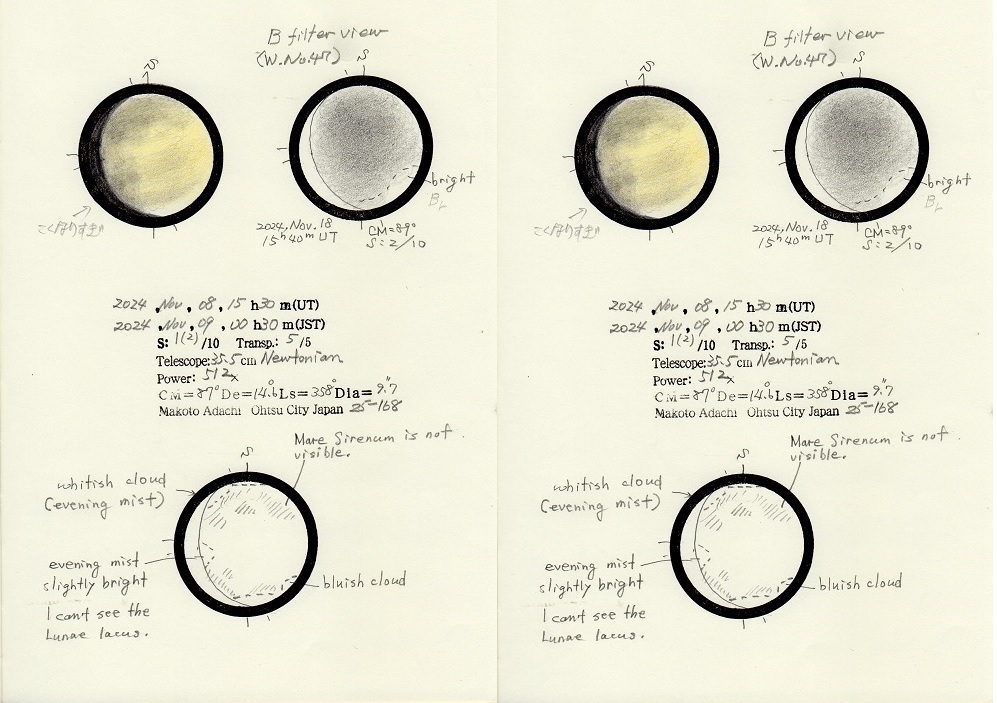 B filter view
(W.No.47)
S
S
bright
Br
こくなりすぎ
2024, Nov. 18
15h 40m UT
CM=89°
S: 2/10
2024, Nov, 08, 15 h30 m(UT)
2024, Nov, 09, 00 h30 m(JST)
S: 1(2)/10 Transp.: 5/5
Telescope:35.5cm Newtonian
Power: 512x
CM=87° De=14.6° Ls=358° Dia=9."7
Makoto Adachi Ohtsu City Japan 25-168
Mare Sirenum is not
visible.
S
whitish cloud
(evening mist)
evening mist
slightly bright
bluish cloud
I can't see the
Lunae lacus.
B filter view
(W.No.47)
S
S
bright
Br
こくなりすぎ
2024, Nov. 18
15h 40m UT
CM=89°
S: 2/10
2024, Nov, 08, 15 h30 m(UT)
2024, Nov, 09, 00 h30 m(JST)
S: 1(2)/10 Transp.: 5/5
Telescope:35.5cm Newtonian
Power: 512x
CM=87° De=14.6° Ls=358° Dia=9."7
Makoto Adachi Ohtsu City Japan 25-168
Mare Sirenum is not
visible.
S
whitish cloud
(evening mist)
evening mist
slightly bright
bluish cloud
I can't see the
Lunae lacus.